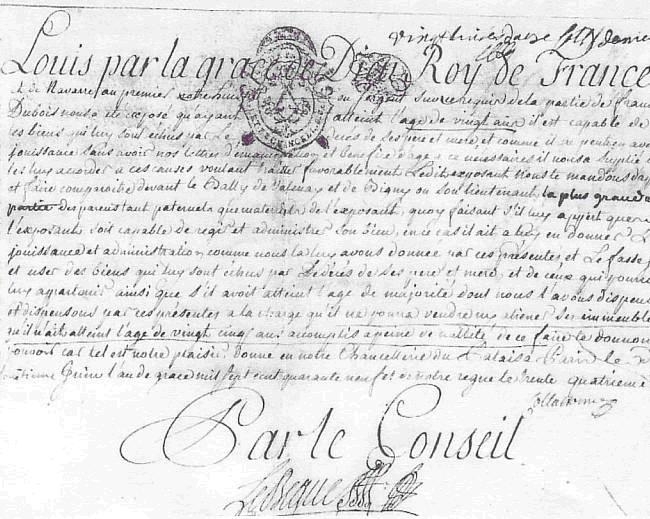 Vingt trois
Louis par la grace de Dieu Roy de France
et de Navarre au premier notre huissier ou sergent sur ce requis de la partie de
Dubois nous a été exposé qu'ayant atteint l'age de vingt ans il est capable de
les biens qui luy sont echus par le décés de ses pere et mere et comme il ne peut en avoir
jouissance sans avoir nos lettres d'emancipation et benefice d'age a ce necessaires il nous a suplié de
les luy accorder a ces causes voulant traiter favorablement ledit exposant nous te mandons
et faire comparoitre devant le Bailly de Valençay et de ou son lieutenant la plus grande
partie des parens tant paternels que maternels de l'exposant, quoy faisant s'il luy appert que
l'exposant soit capable de regir et administrer son bien, en ce cas il ait a luy en donner la
jouissance et administration comme nous la luy avons donnée par ces presentes et le fasse
et user des biens qui luy sont echus par le décés de ses pere et mere, et de ceux qui pourroient
luy apartenir ainsi que s'il avoit atteint l'age de majorité dont nous l'avons dispensé
et dispensons par ces presentes a la charge qu'il ne pourra vendre ny aliener ses immeubles
qu'il n'ait atteint l'age de vingt cinq ans accomplis a peine de nullité de ce faire te donnons
pouvoir car tel est notre plaisir donné en notre Chancellerie du Palais a Paris le
Juin l'an de grace mil sept cent quarante neuf et de notre regne le trente quatrieme
Collationné
Par le Conseil
Le Begue